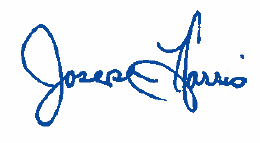 Joseph Harris